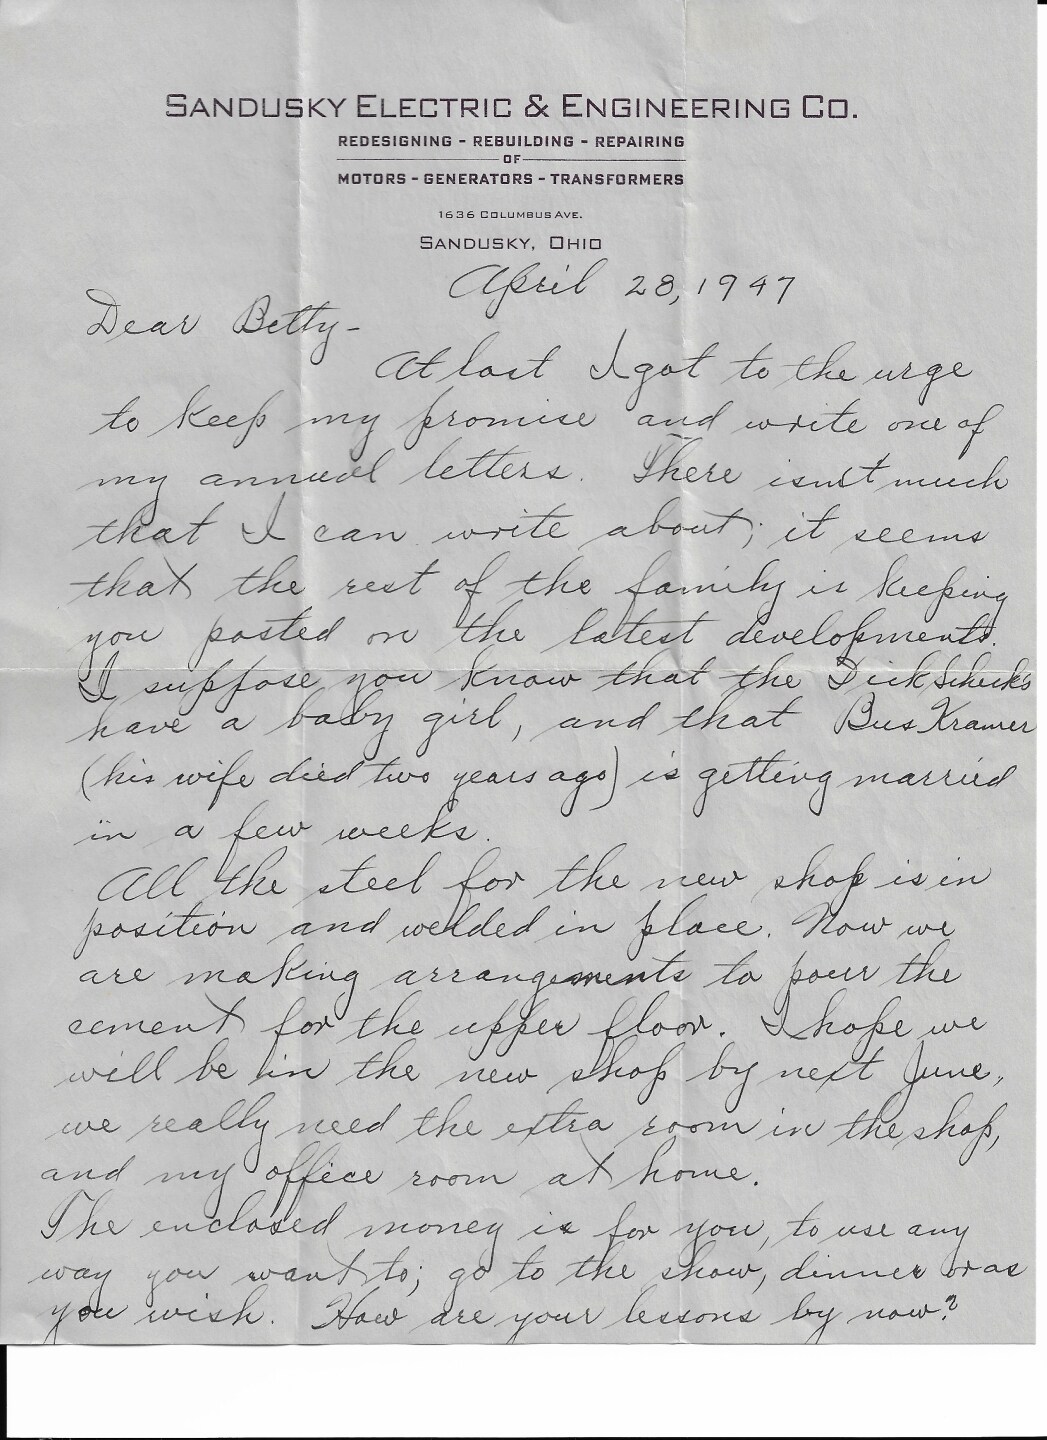 SANDUSKY ELECTRIC & ENGINEERING CO.
REDESIGNING - REBUILDING - REPAIRING
OF
MOTORS - GENERATORS - TRANSFORMERS
1636 COLUMBUS AVE.
SANDUSKY, OHIO
April 28, 1947
Dear Betty -
At last I got to the urge
to keep my promise and write one of
my annual letters. There isn't much
that I can write about; it seems
that the rest of the family is keeping
you posted on the latest developments.
I suppose you know that the Dick Scheck's
have a baby girl, and that Bus Kramer
(his wife died two years ago) is getting married
in a few weeks.
All the steel for the new shop is in
position and welded in place. Now we
are making arrangements to pour the
cement for the upper floor. I hope we
will be in the new shop by next June,
we really need the extra room in the shop,
and my office room at home.
The enclosed money is for you, to use any
way you want to; go to the show, dinner or as
you wish. How are your lessons by now?